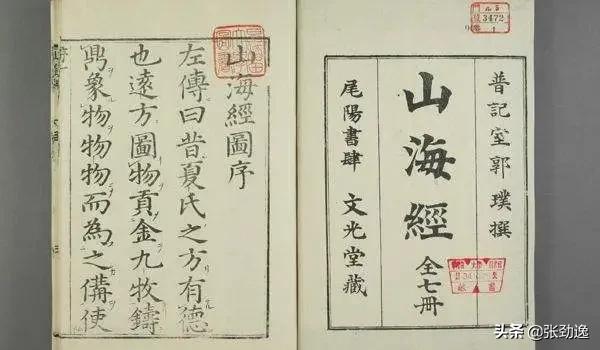 普記室郭 璞撰
山海經
全七冊
尾陽書肆 文光堂藏
3472
山海經圖序
左傳曰昔夏氏之方有德
也遠方圖物貢金九牧鑄
鼎象物物物而為之備使
头条 @张劲逸